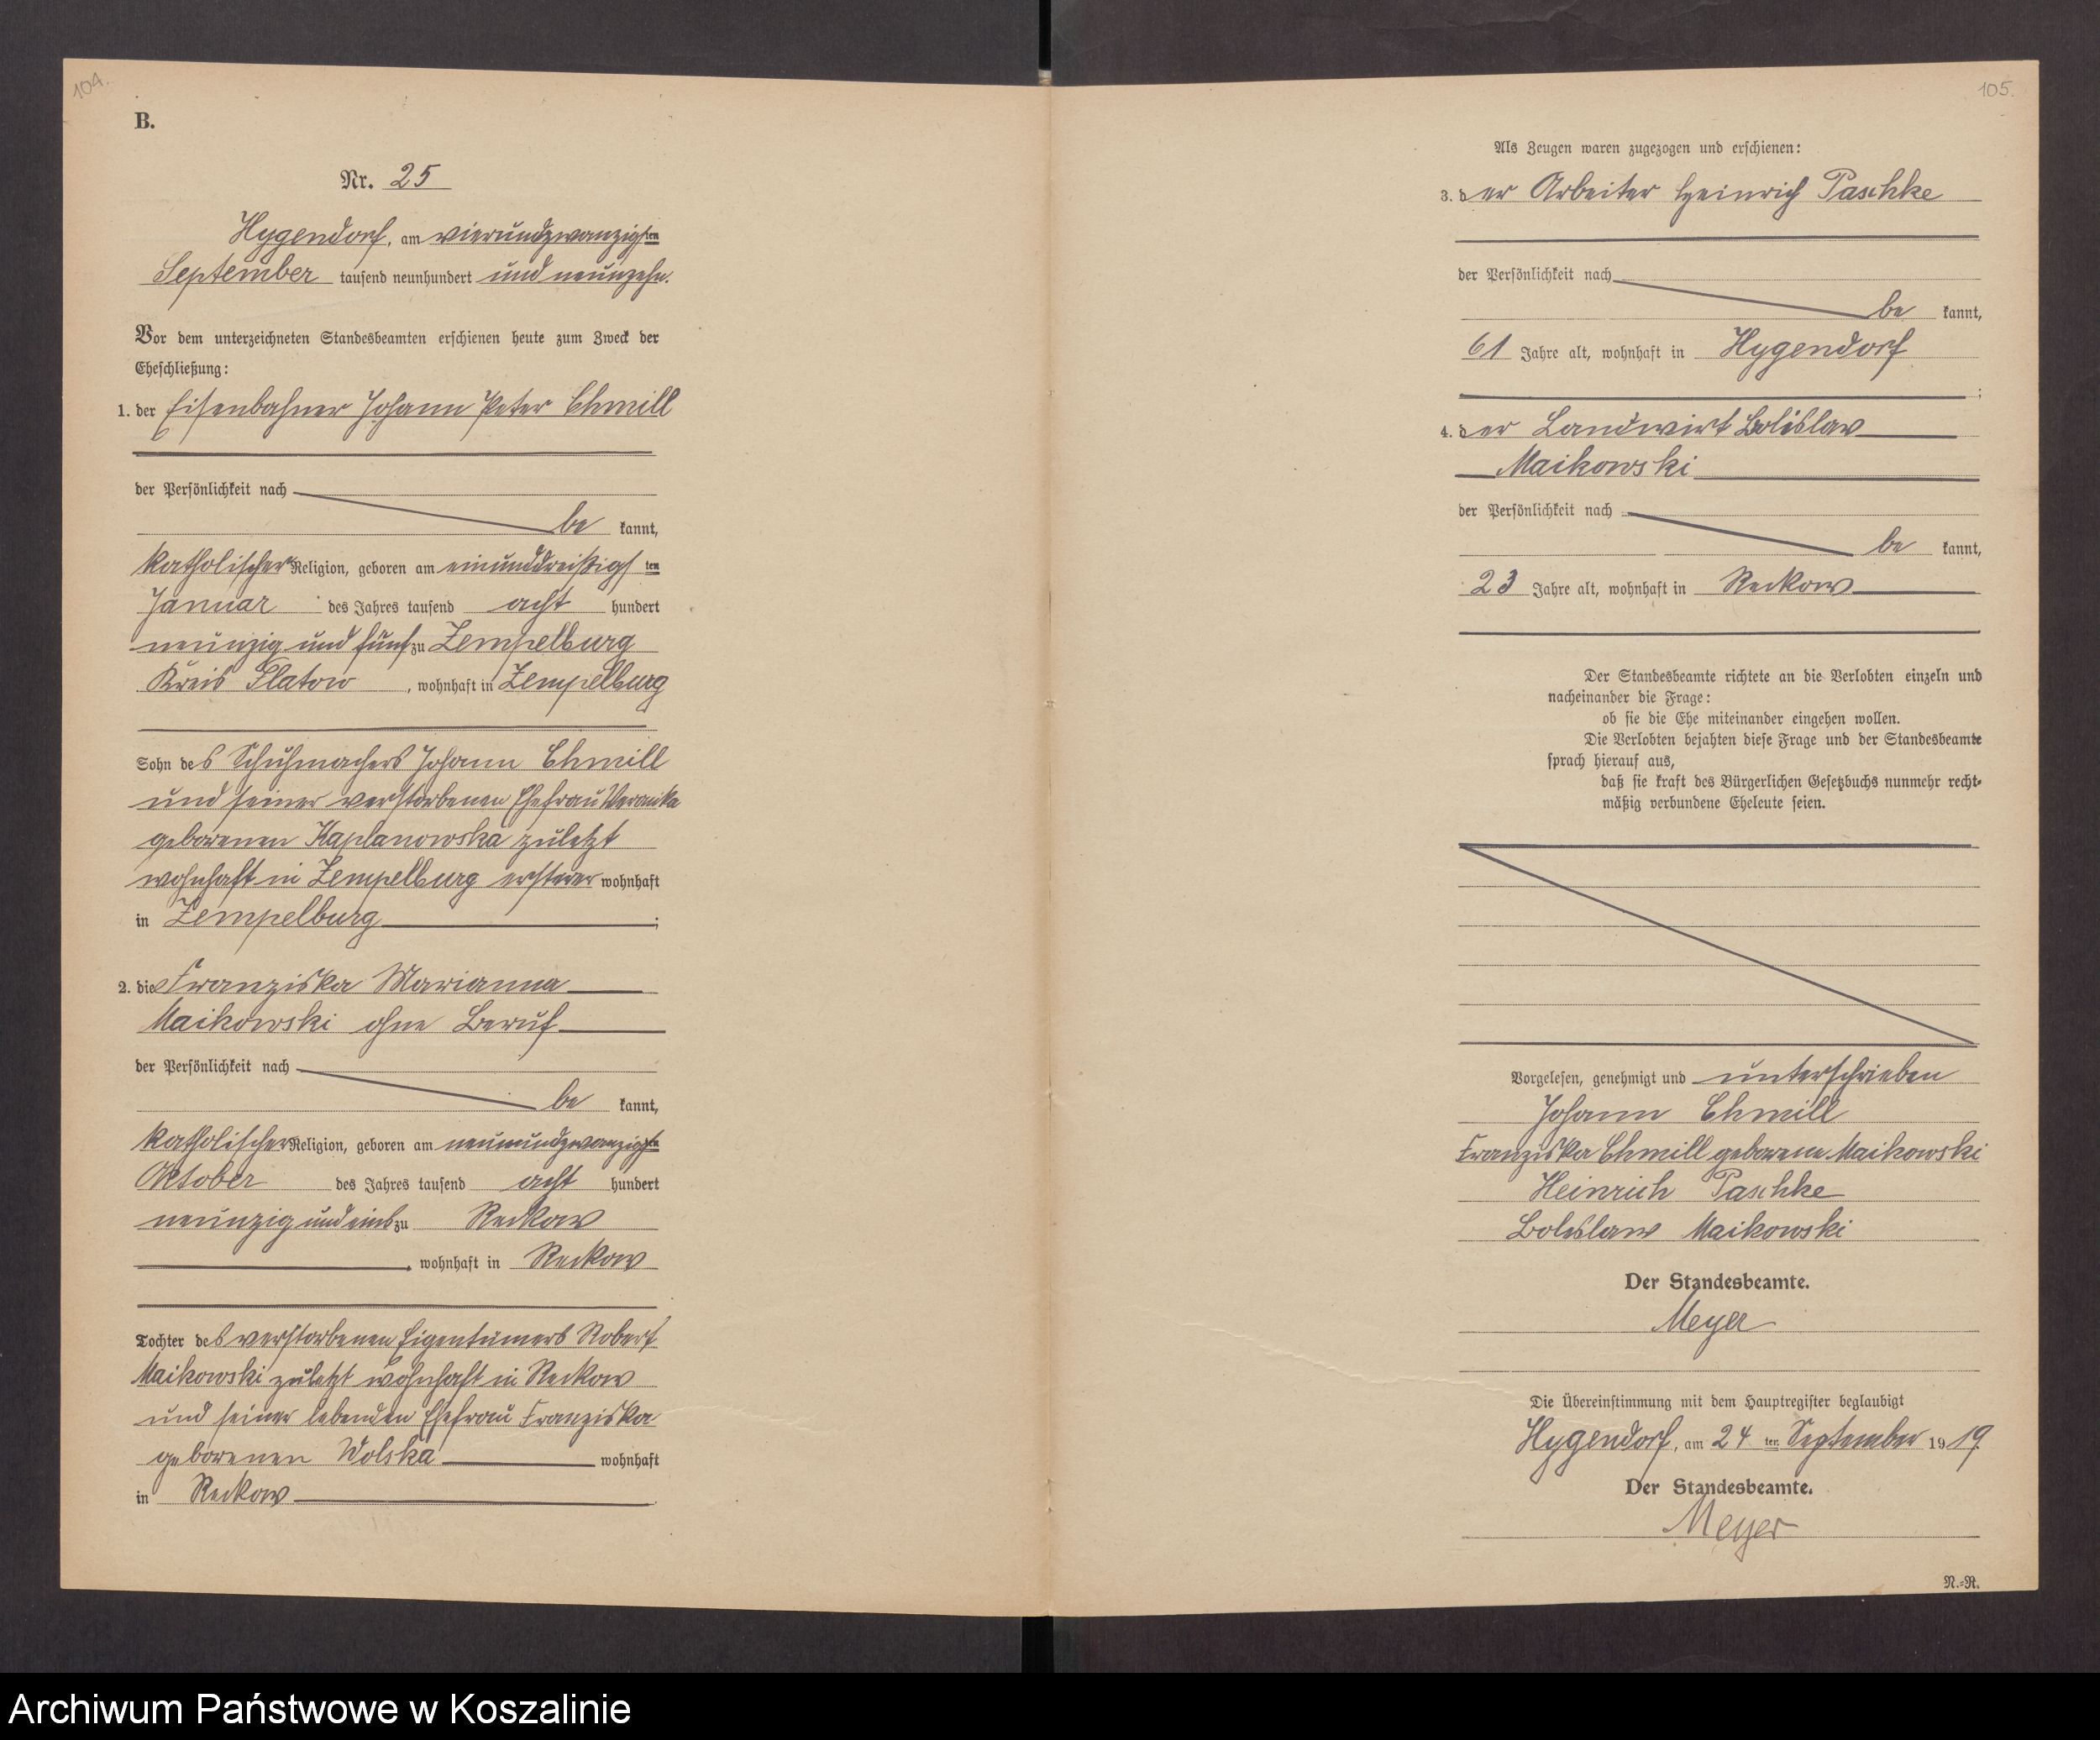 104.
B.
Nr. 25
Hygendorf, am vierundzwanzigsten
September tausend neunhundert und neunzehn.
Vor dem unterzeichneten Standesbeamten erschienen heute zum Zweck der
Eheschließung:
1. der Eisenbahner Johann Peter Chmill
der Persönlichkeit nach
be kannt,
katholischer Religion, geboren am einunddreißigsten
Januar des Jahres tausend acht hundert
neunzig und fünf zu Zempelburg
Kreis Flatow, wohnhaft in Zempelburg
Sohn des Schuhmachers Johann Chmill
und seiner verstorbenen Ehefrau Veronika
geborenen Kaplanowska zuletzt
wohnhaft in Zempelburg ersterer wohnhaft
in Zempelburg;
2. die Franziska Marianna
Maikowski ohne Beruf
der Persönlichkeit nach
be kannt,
katholischer Religion, geboren am neunundzwanzigsten
Oktober des Jahres tausend acht hundert
neunzig und eins zu Reckow
, wohnhaft in Reckow
Tochter des verstorbenen Eigentümers Robert
Maikowski zuletzt wohnhaft in Reckow
und seiner lebenden Ehefrau Franziska
geborenen Wolska wohnhaft
in Reckow
105.
Als Zeugen waren zugezogen und erschienen:
3. der Arbeiter Heinrich Paschke
der Persönlichkeit nach
be kannt,
61 Jahre alt, wohnhaft in Hygendorf
;
4. der Landwirt Boleslaw
Maikowski
der Persönlichkeit nach
be kannt,
23 Jahre alt, wohnhaft in Reckow
Der Standesbeamte richtete an die Verlobten einzeln und
nacheinander die Frage:
ob sie die Ehe miteinander eingehen wollen.
Die Verlobten bejahten diese Frage und der Standesbeamte
sprach hierauf aus,
daß sie kraft des Bürgerlichen Gesetzbuchs nunmehr recht-
mäßig verbundene Eheleute seien.
Vorgelesen, genehmigt und unterschrieben
Johann Chmill
Franziska Chmill geborene Maikowski
Heinrich Paschke
Boleslaw Maikowski
Der Standesbeamte.
Meyer
Die Übereinstimmung mit dem Hauptregister beglaubigt
Hygendorf, am 24 ten September 1919.
Der Standesbeamte.
Meyer
N.-R.
Archiwum Państwowe w Koszalinie